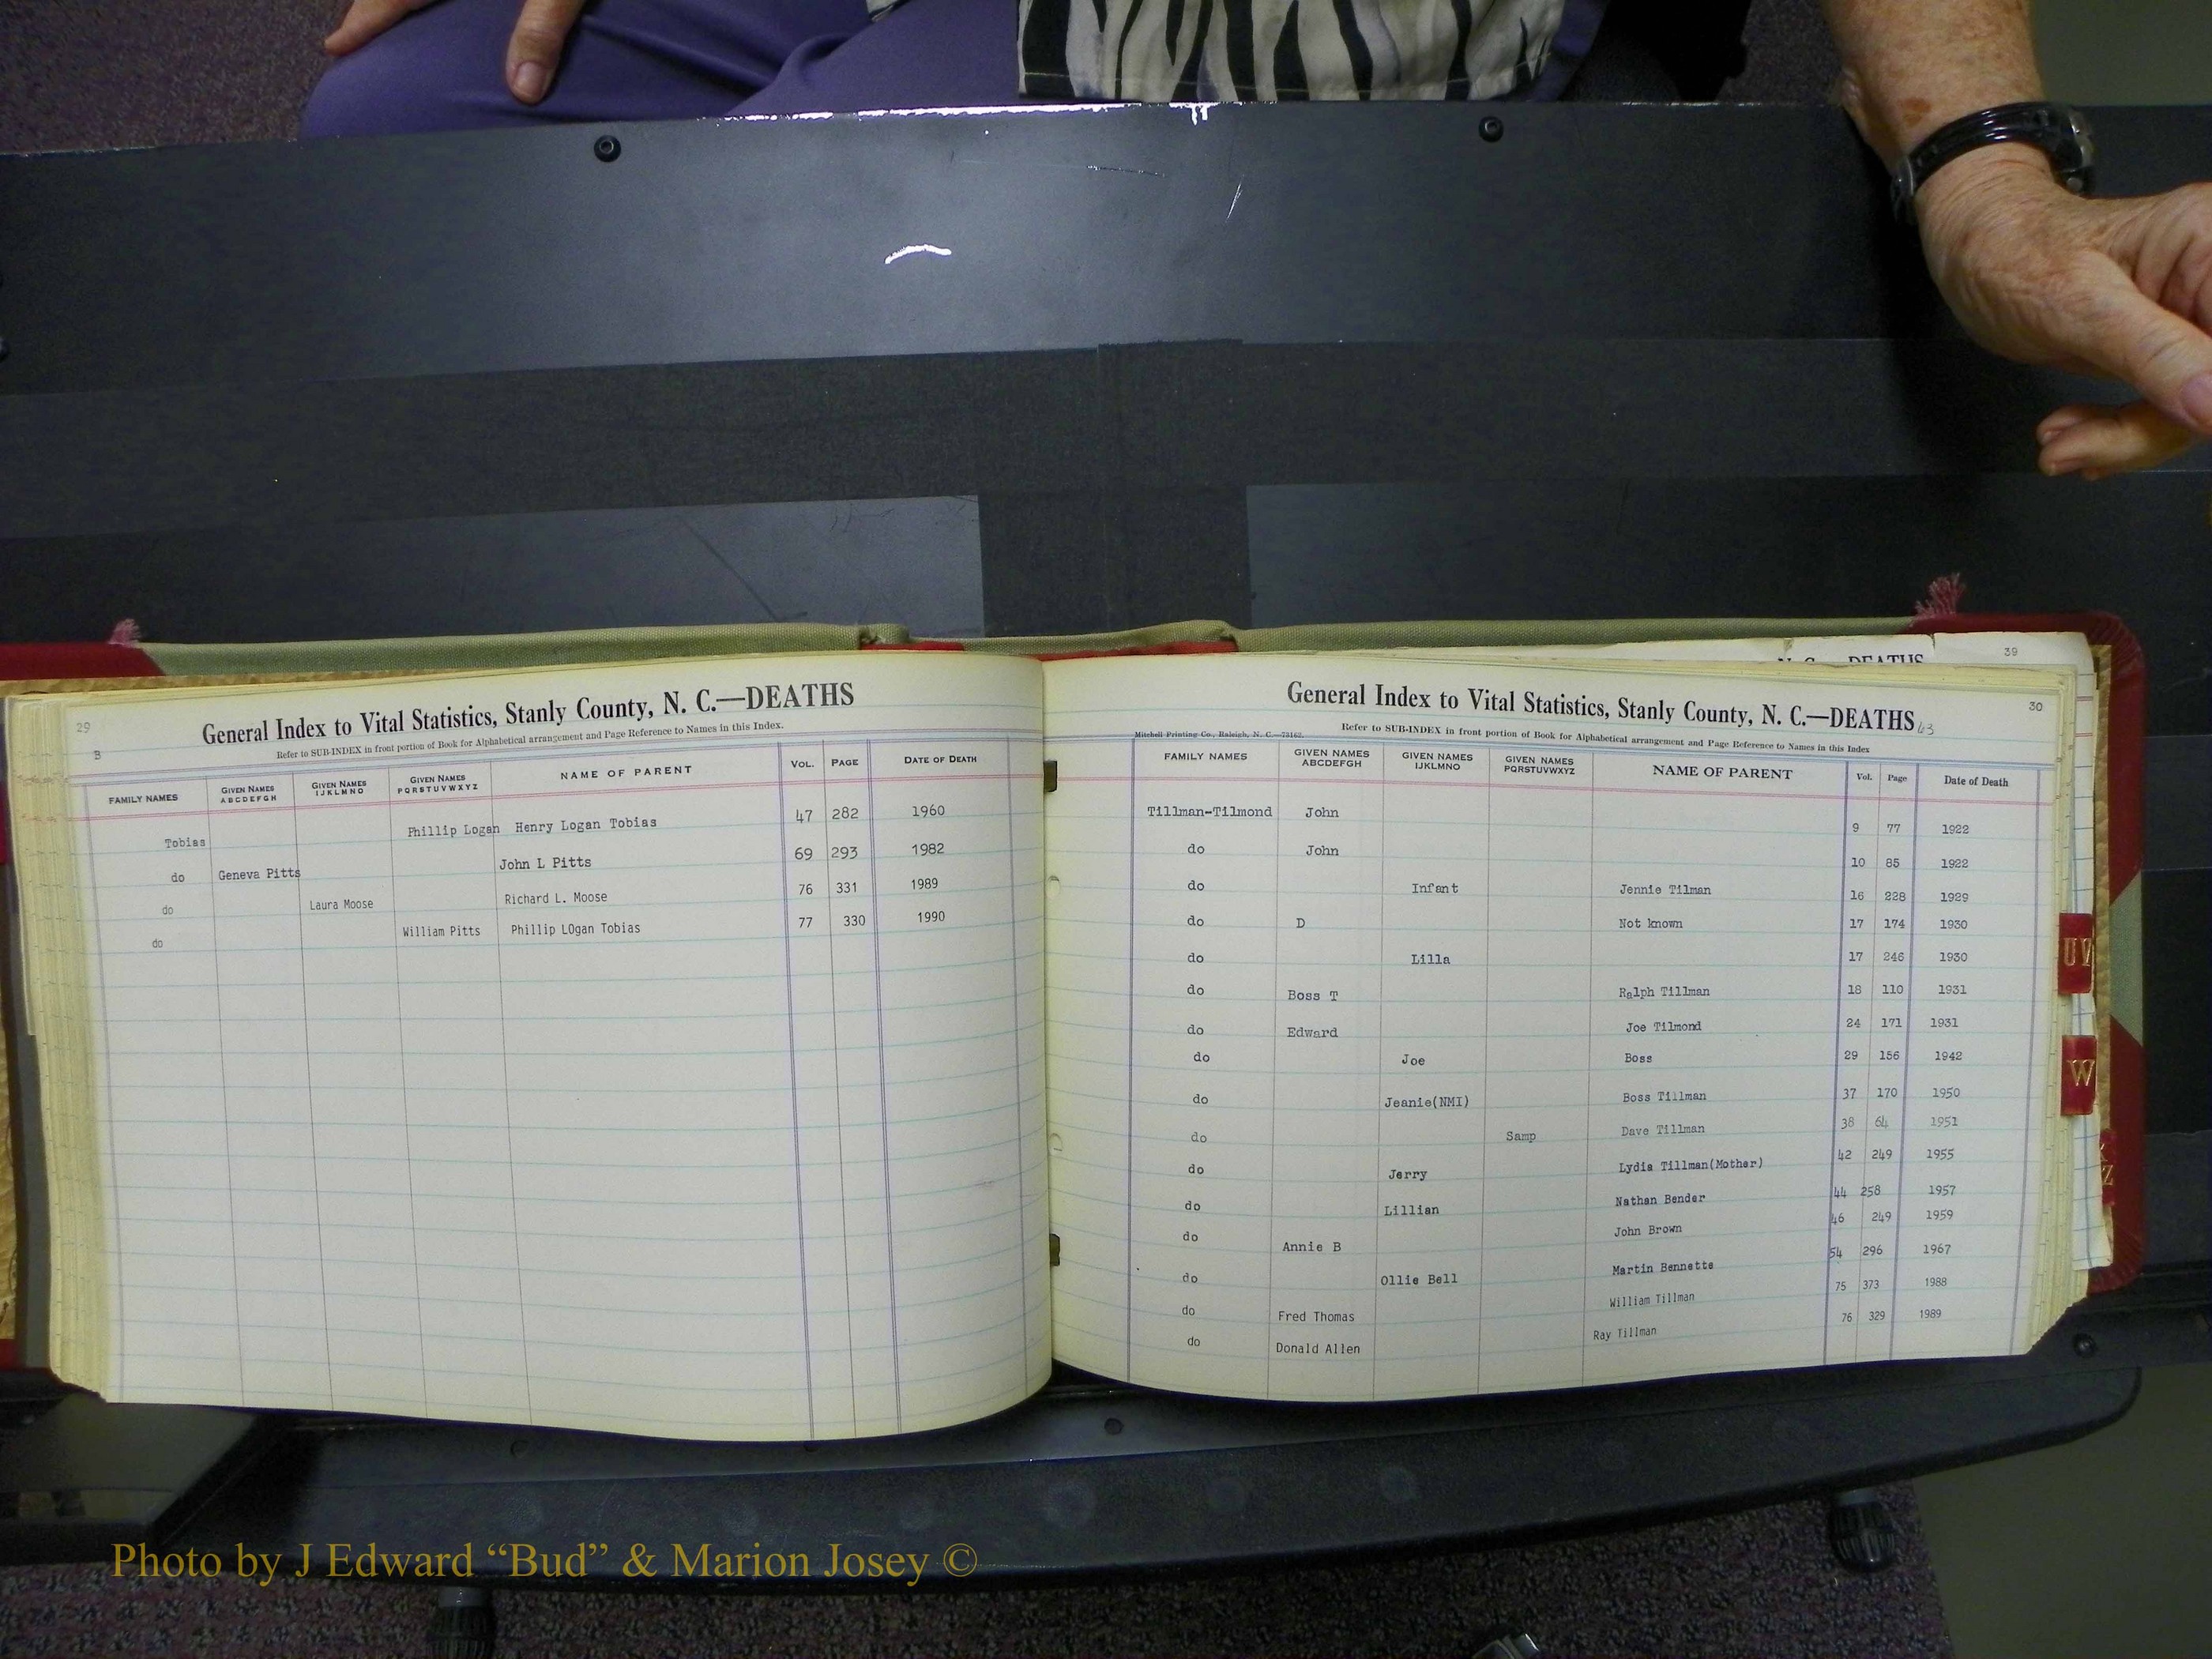 29
B
General Index to Vital Statistics, Stanly County, N. C.—DEATHS
Refer to SUB-INDEX in front portion of Book for Alphabetical arrangement and Page Reference to Names in this Index.
FAMILY NAMES GIVEN NAMES ABCDEFGH GIVEN NAMES IJKLMNO GIVEN NAMES PQRSTUVWXYZ NAME OF PARENT VOL. PAGE DATE OF DEATH
Tobias Phillip Logan Henry Logan Tobias 47 282 1960
do Geneva Pitts John L Pitts 69 293 1982
do Laura Moose Richard L. Moose 76 331 1989
do William Pitts Phillip LOgan Tobias 77 330 1990
N. C.—DEATHS 39
30
General Index to Vital Statistics, Stanly County, N. C.—DEATHS 43
Mitchell Printing Co., Raleigh, N. C.—73162 Refer to SUB-INDEX in front portion of Book for Alphabetical arrangement and Page Reference to Names in this Index
FAMILY NAMES GIVEN NAMES ABCDEFGH GIVEN NAMES IJKLMNO GIVEN NAMES PQRSTUVWXYZ NAME OF PARENT Vol. Page Date of Death
Tillman-Tilmond John 9 77 1922
do John 10 85 1922
do Infant Jennie Tilman 16 228 1929
do D Not known 17 174 1930
do Lilla 17 246 1930
do Boss T Ralph Tillman 18 110 1931
do Edward Joe Tilmond 24 171 1931
do Joe Boss 29 156 1942
do Jeanie(NMI) Boss Tillman 37 170 1950
do Samp Dave Tillman 38 64 1951
do Jerry Lydia Tillman(Mother) 42 249 1955
do Lillian Nathan Bender 44 258 1957
do Annie B John Brown 46 249 1959
do Ollie Bell Martin Bennette 54 296 1967
do Fred Thomas William Tillman 75 373 1988
do Donald Allen Ray Tillman 76 329 1989
UV
W
Z
Photo by J Edward “Bud” & Marion Josey ©